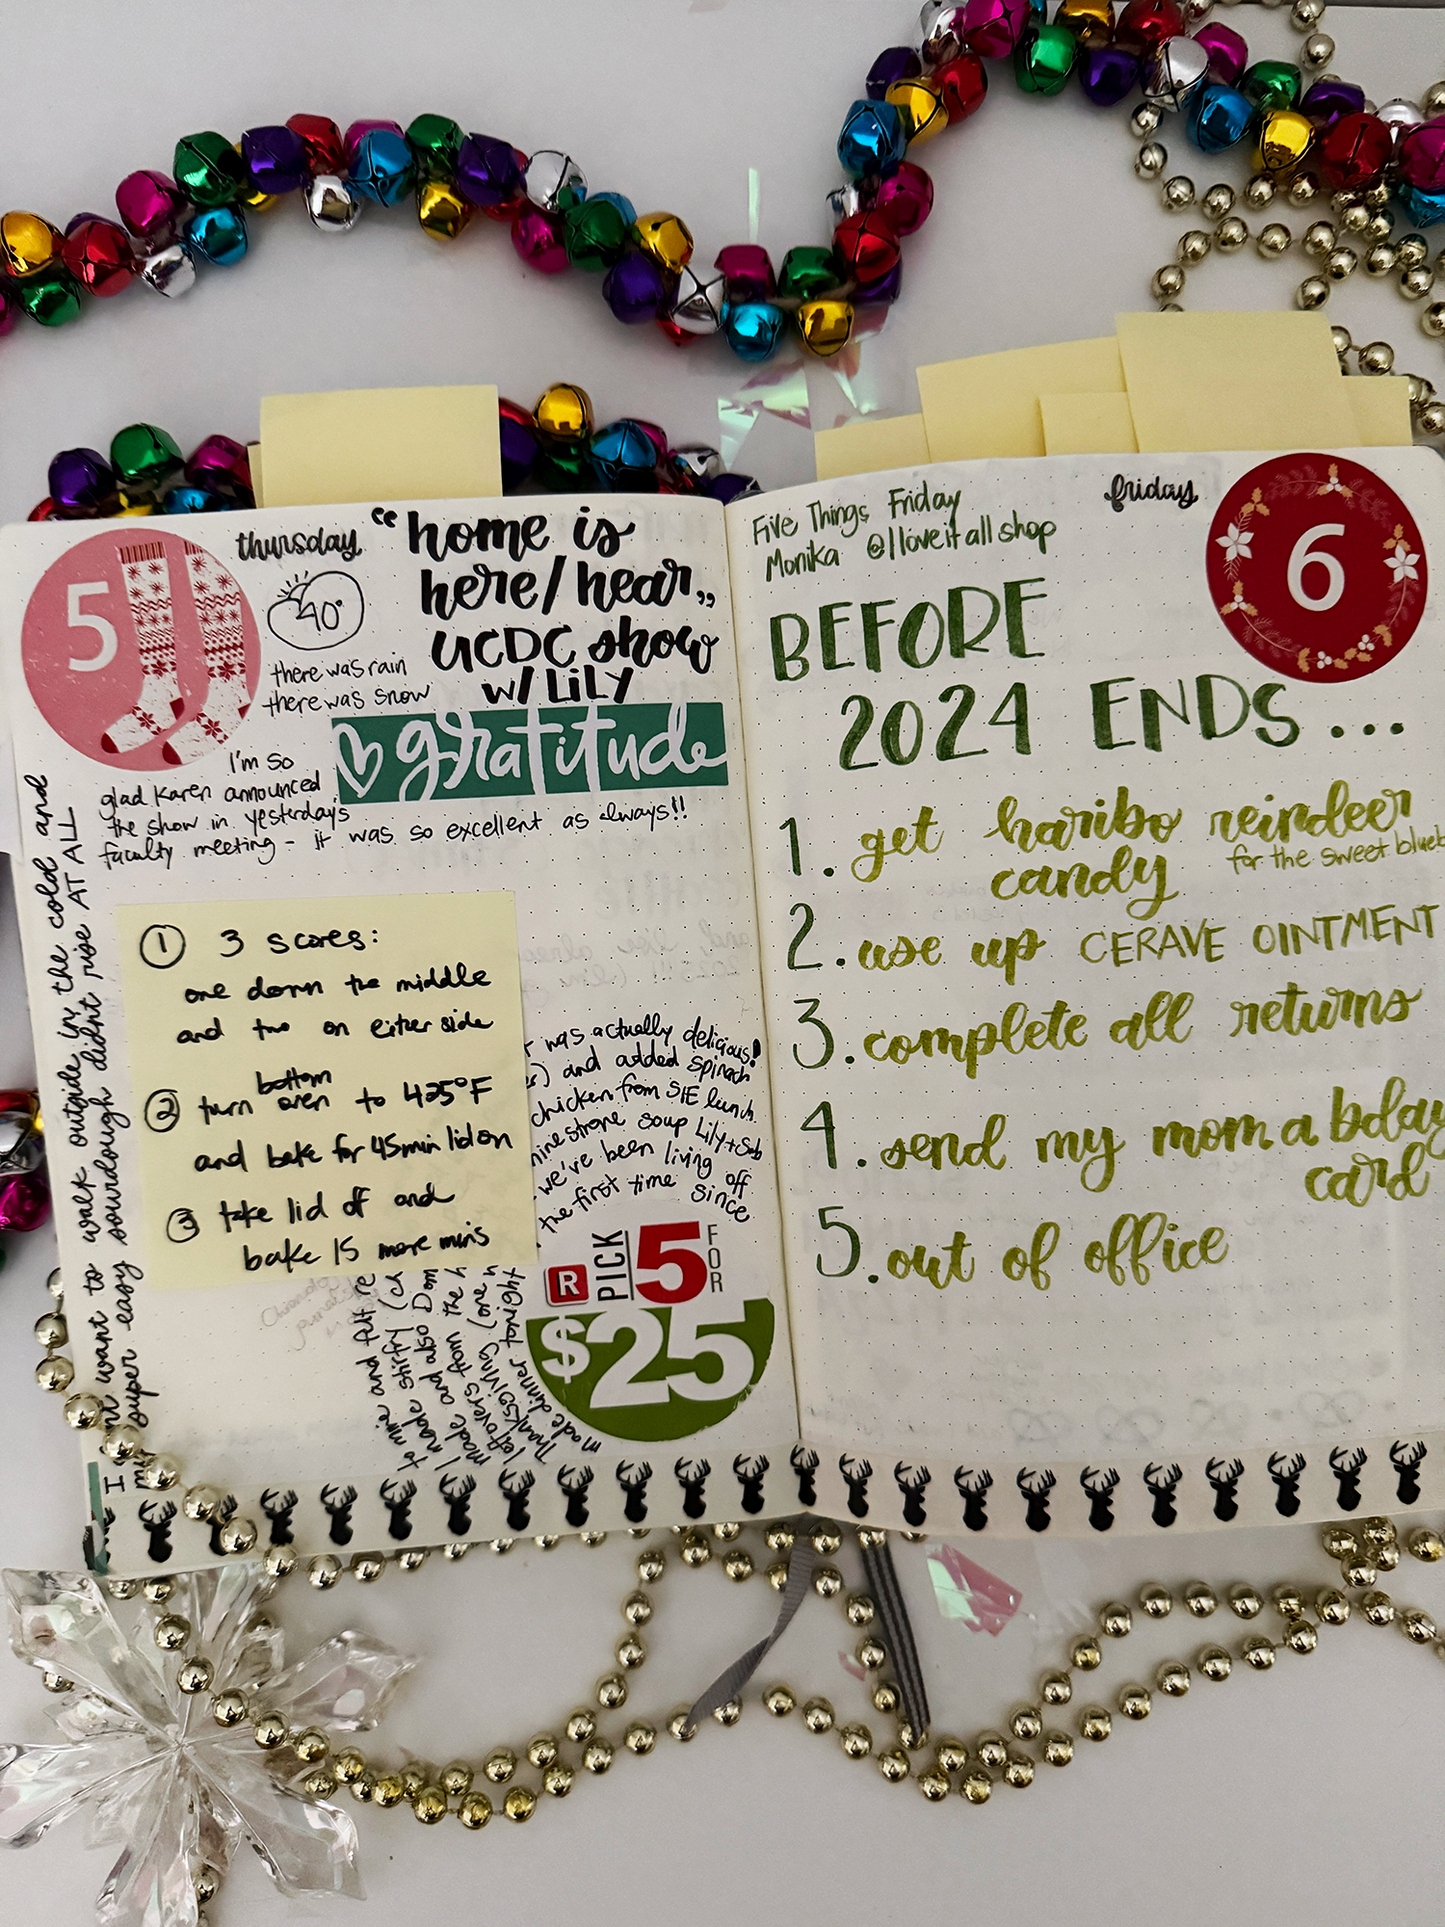 5
thursday
40°
there was rain
there was snow
"home is
here/hear,,
UCDC show
w/ LiLY
gratitude
I'm so
glad Karen announced
the show in yesterday's
faculty meeting - it was so excellent as always!!
want to walk outside in the cold and
super easy sourdough didn't rise AT ALL
① 3 scores:
one down the middle
and two on either side
② turn bottom oven to 425°F
and bake for 45min lid on
③ take lid off and
bake 15 more mins
was actually delicious!
and added spinach
chicken from SIE lunch.
soup Lily+Seb
we've been living off
the first time since
to mire and felt re
I made stirfry (ch
made and also Dom
leftovers from the h
Thanksgiving (one
made dinner tonight
R PICK 5 FOR
$25
friday
6
Five Things Friday
Monika @lloveitallshop
BEFORE
2024 ENDS...
1. get haribo reindeer
candy for the sweet blueb
2. use up CERAVE OINTMENT
3. complete all returns
4. send my mom a bday
card
5. out of office